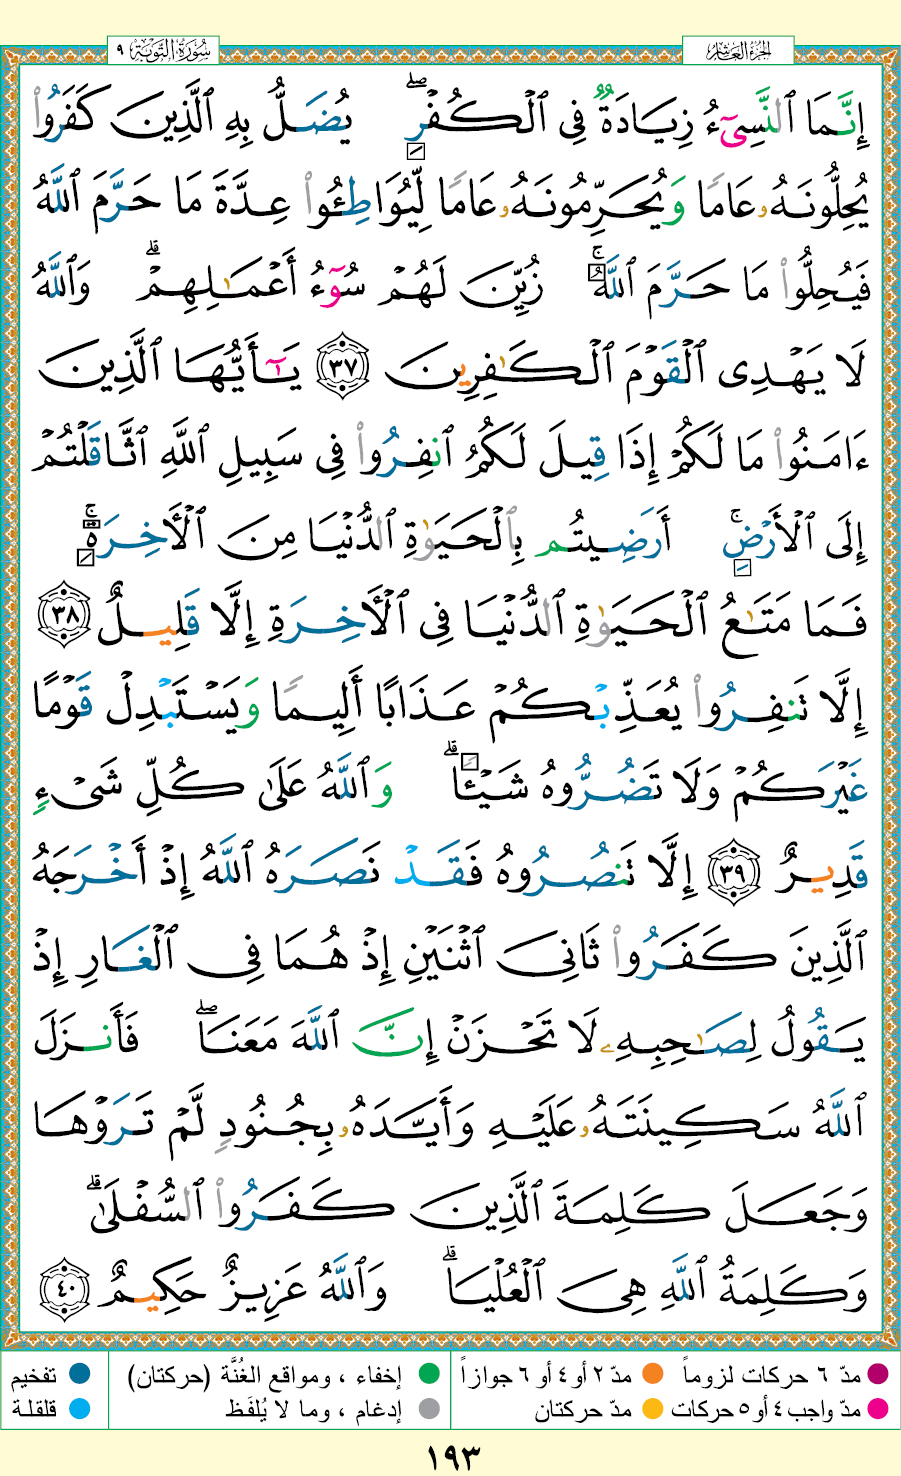 سُورَةُ التَّوْبَة ٩
الجُزْءُ العَاشِر
إِنَّمَا ٱلنَّسِىٓءُ زِيَادَةٌ فِى ٱلْكُفْرِ ۖ يُضَلُّ بِهِ ٱلَّذِينَ كَفَرُوا۟
يُحِلُّونَهُۥ عَامًا وَيُحَرِّمُونَهُۥ عَامًا لِّيُوَاطِـُٔوا۟ عِدَّةَ مَا حَرَّمَ ٱللَّهُ
فَيُحِلُّوا۟ مَا حَرَّمَ ٱللَّهُ ۚ زُيِّنَ لَهُمْ سُوٓءُ أَعْمَـٰلِهِمْ ۗ وَٱللَّهُ
لَا يَهْدِى ٱلْقَوْمَ ٱلْكَـٰفِرِينَ ٣٧ يَـٰٓأَيُّهَا ٱلَّذِينَ
ءَامَنُوا۟ مَا لَكُمْ إِذَا قِيلَ لَكُمُ ٱنفِرُوا۟ فِى سَبِيلِ ٱللَّهِ ٱثَّاقَلْتُمْ
إِلَى ٱلْأَرْضِ ۚ أَرَضِيتُم بِٱلْحَيَوٰةِ ٱلدُّنْيَا مِنَ ٱلْـَٔاخِرَةِ ۚ
فَمَا مَتَـٰعُ ٱلْحَيَوٰةِ ٱلدُّنْيَا فِى ٱلْـَٔاخِرَةِ إِلَّا قَلِيلٌ ٣٨
إِلَّا تَنفِرُوا۟ يُعَذِّبْكُمْ عَذَابًا أَلِيمًا وَيَسْتَبْدِلْ قَوْمًا
غَيْرَكُمْ وَلَا تَضُرُّوهُ شَيْـًٔا ۗ وَٱللَّهُ عَلَىٰ كُلِّ شَىْءٍ
قَدِيرٌ ٣٩ إِلَّا تَنصُرُوهُ فَقَدْ نَصَرَهُ ٱللَّهُ إِذْ أَخْرَجَهُ
ٱلَّذِينَ كَفَرُوا۟ ثَانِىَ ٱثْنَيْنِ إِذْ هُمَا فِى ٱلْغَارِ إِذْ
يَقُولُ لِصَـٰحِبِهِۦ لَا تَحْزَنْ إِنَّ ٱللَّهَ مَعَنَا ۖ فَأَنزَلَ
ٱللَّهُ سَكِينَتَهُۥ عَلَيْهِ وَأَيَّدَهُۥ بِجُنُودٍ لَّمْ تَرَوْهَا
وَجَعَلَ كَلِمَةَ ٱلَّذِينَ كَفَرُوا۟ ٱلسُّفْلَىٰ ۗ
وَكَلِمَةُ ٱللَّهِ هِىَ ٱلْعُلْيَا ۗ وَٱللَّهُ عَزِيزٌ حَكِيمٌ ٤٠
مدّ ٦ حركات لزوماً مدّ ٢ أو ٤ أو ٦ جوازاً إخفاء ، ومواقع الغُنَّة (حركتان) تفخيم
مدّ واجب ٤ أو ٥ حركات مدّ حركتان إدغام ، وما لا يُلفَظ قلقلة
١٩٣